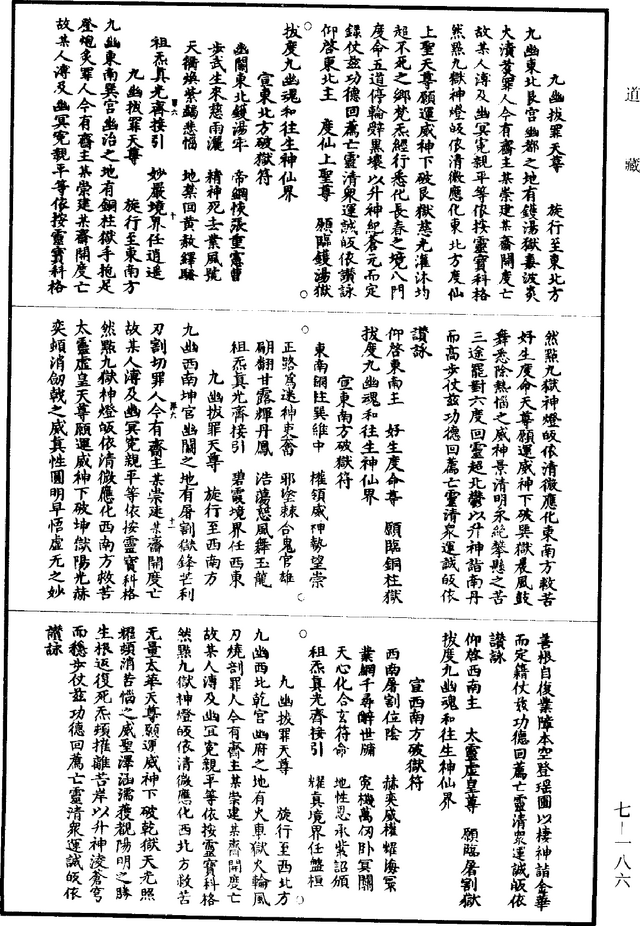 道藏
九幽拔罪天尊　旋行至東北方
九幽東北艮宮幽都之地有鑊湯獄毒波炎
大潰羑罪人今有齋主某崇建某齋開度亡
故某人溥及幽冥冤親平等依按靈寶科格
然點九獄神燈皈依清微應化東北方度仙
上聖天尊願運威神下破艮獄慈光灌沐均
超不死之鄉梵炁經行悉化長春之境八門
度命五道停輪劈黑壞以升神紀蒼元而定
錄仗茲功德回薦亡靈清衆運誠皈依讚詠
仰啓東北主　度仙上聖尊　願臨鑊湯獄
拔度九幽魂和往生神仙界
宣東北方破獄符
幽關東北鑊湯牢　帝鋼恢張重憲曹
步武生來慈雨灑　精神死去業風號
天衢煥紫鷁悉愊　地葉回黃赦鐸騷
祖炁真光齊接引　妙嚴境界任逍遥
九幽拔罪天尊　旋行至東南方
九幽東南巽宮幽治之地有銅柱獄手抱足
登炮炙罪人今有齋主某崇建某齋開度亡
故某人溥及幽冥冤親平等依按靈寶科格
然點九獄神燈皈依清微應化東南方救苦
好生度命天尊願運威神下破巽獄晨風鼓
舞悉除熱惱之威神景清明永絶攀懸之苦
三途罷對六度回靈超北鬱以升神詣南丹
而高步仗茲功德回薦亡靈清衆運誠皈依
讚詠
仰啓東南主　好生度命尊　願臨銅柱獄
拔度九幽魂和往生神仙界
宣東南方破獄符
東南銅柱巽維中　權領威神勢望崇
正路爲迷神吏畜　邪塗棘合鬼官雄
翩翻甘露輝丹鳳　浩蕩慈風舞玉龍
祖炁真光齊接引　碧霞境界任西東
九幽拔罪天尊　旋行至西南方
九幽西南坤宮幽關之地有屠割獄鋒芒利
刃割切罪人今有齋主某崇建某齋開度亡
故某人溥及幽冥冤親平等依按靈寶科格
然點九獄神燈皈依清微應化西南方救苦
太靈虛皇天尊願運威神下破坤獄陽光赫
奕頓消劒戟之威真性圓明早悟虛无之妙
善根自復業障本空登瑶圃以棲神詣金華
而定籍仗茲功德回薦亡靈清衆運誠皈依
讚詠
仰啓西南主　太靈虛皇尊　願臨屠割獄
拔度九幽魂和往生神仙界
宣西南方破獄符
西南屠割位陰　赫奕威權耀海寰
業網千尋解世牖　冤機萬仞卧冥關
天心化合玄符命　地性思承紫詔頒
祖炁真光齊接引　耀真境界任盤桓
九幽拔罪天尊　旋行至西北方
九幽西北乾宮幽府之地有火車獄火輪風
刃燒剖罪人今有齋主某崇建某齋開度亡
故某人溥及幽冥冤親平等依按靈寶科格
然點九獄神燈皈依清微應化西北方救苦
无量太華天尊願運威神下破乾獄天光照
耀頓消苦惱之威聖澤涵濡獲覩陽明之勝
生根返復死炁頓摧離苦岸以升神淩蒼穹
而穩步仗茲功德回薦亡靈清衆運誠皈依
讚詠
七—一八六